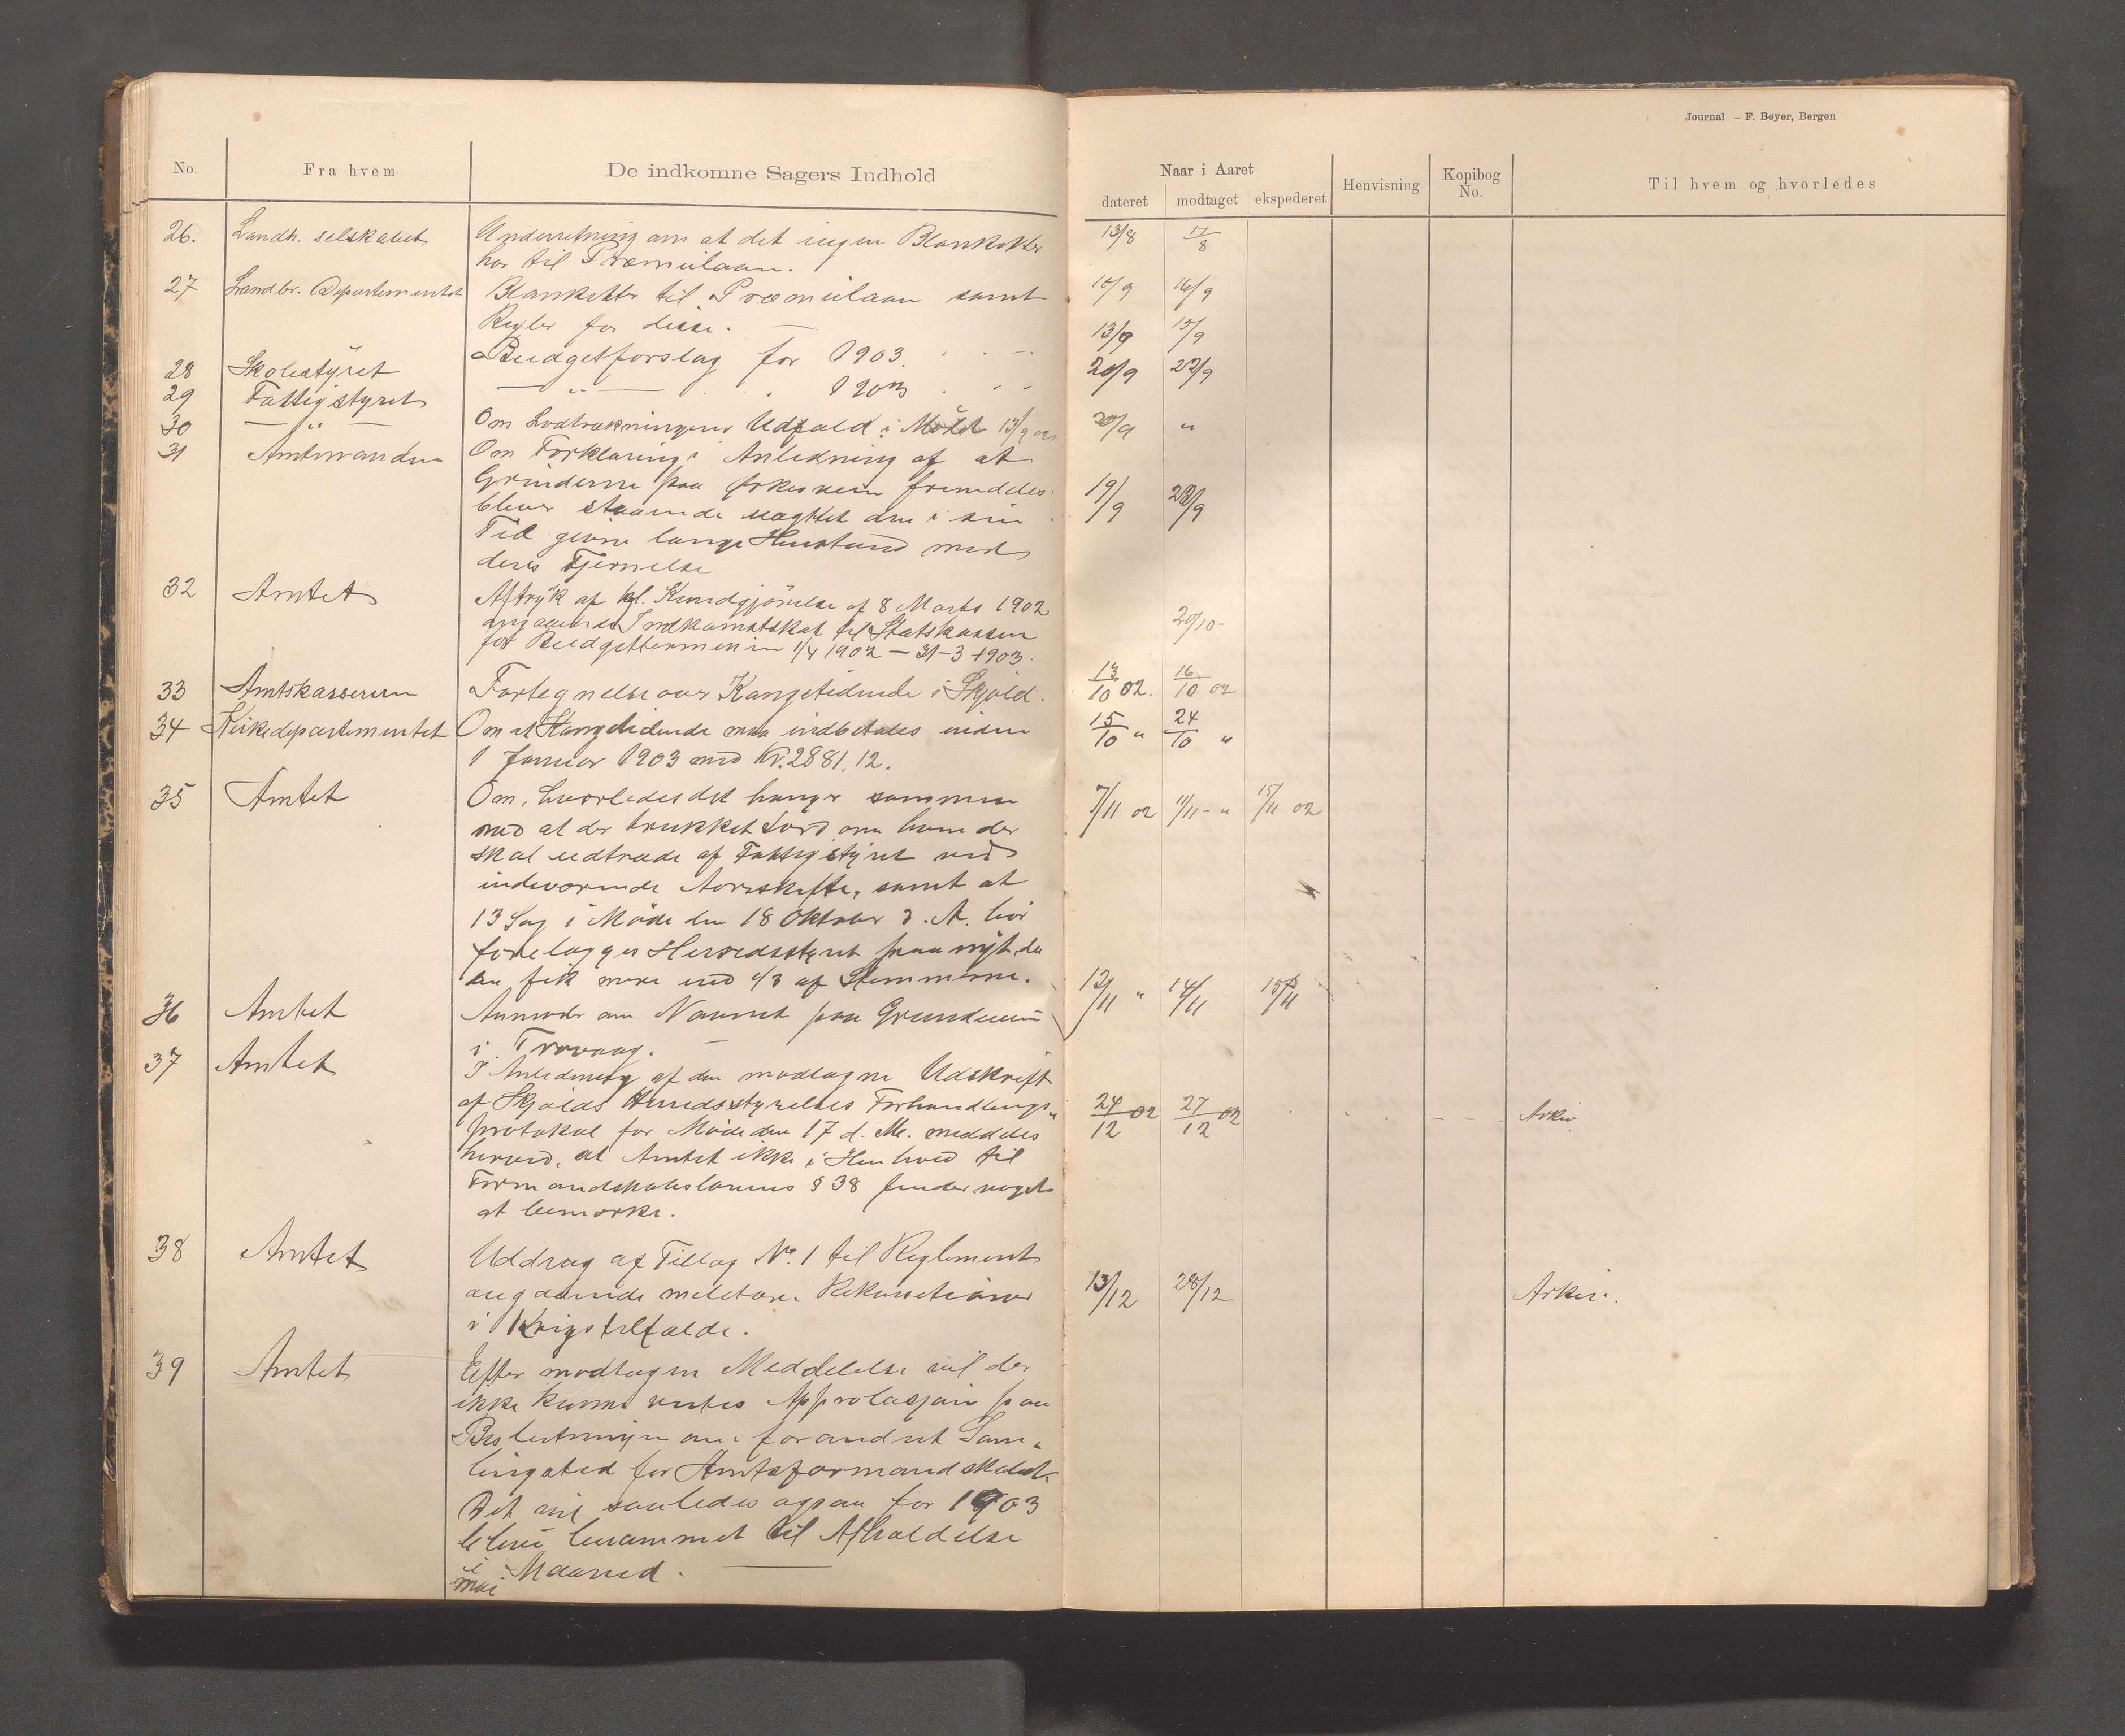 Journal – F. Beyer, Bergen
No. Fra hvem De indkomne Sagers Indhold Naar i Aaret Henvisning Kopibog No. Til hvem og hvorledes
dateret modtaget ekspederet
26. Landh. selskabet Underretning om at det ingen Blanketter 13/8 17/8
har til Præmielaan.
27 Landbr. Departementet Blanketter til Præmielaan samt 10/9 16/9
Regler for disse. —
28 Skolestyret Budgetforslag for 1903. 13/9 15/9
29 Fattigstyret — " — 1903 20/9 22/9
30 — " — Om Lodtrækningens Udfald i Mødet 13/9 02 20/9 "
31 Amtmanden Om Forklaring i Anledning af at
Grinderne paa Ørkesveien fremdeles 19/9 22/9
bliver staaende uagttet den i sin
Tid givne lange Henstand med
deres Fjernelse
32 Amtet Aftryk af kgl. Kundgjörelse af 8 Marts 1902
angaaende Indkomstskat til Statskassen 20/10-
for Budgetterminen 1/4 1902 — 31-3 1903.
33 Amtskassereren Fortegnelse over Kongetiende i Skjold. 13/10 02. 16/10 02
34 Kirkedepartementet Om at Kongetiende maa indbetales inden 15/10 " 24/10 "
1 Januar 1903 med Kr. 2881,12.
35 Amtet Om, hvorledes det hænger sammen 7/11 02 11/11 - " 15/11 02
med at der trukket Lod om hvem der
skal udtræde af Fattigstyret ved
indeværende Aarsskifte, samt at
13 Sag i Möde den 18 Oktober d. A. bör
forelægges Herredsstyret paa nyt, da
den fik mere end 1/3 af Stemmerne.
36 Amtet Anmoder om Navnet paa 12/11 " 14/11 15/11
i Trovaag. —
37 Amtet I Anledning af den modtagne Udskrift
af Skjolds Herredsstyrelses Forhandlings- 24/12 02 27/12 02 Arkiv
protokol for Möde den 17 d. M. meddeles
herved, at Amtet ikke i Henhold til
Formandskabslovens § 38 finder noget
at bemærke.
38 Amtet Uddrag af Tillæg No. 1 til Reglement
angaaende militære Rekvisitioner 13/12 28/12 Arkiv.
i Krigstilfælde.
39 Amtet Efter modtagen Meddelelse vil der
ikke kunne ventes Approbasjon paa
Beslutningen om forandret Sam-
lingsted for Amtsformandskabet
Det vil saaledes ogsaa for 1903
blive berammet til Afholdelse
i Mai Maaned. —